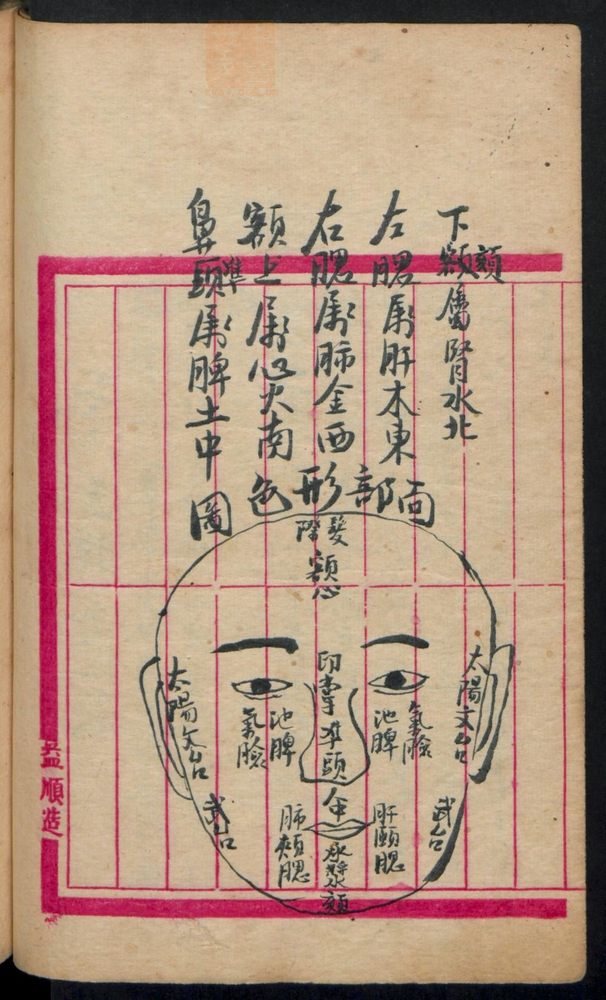 下頦屬腎水北
左腮属肝木東
右腮属肺金西
額上属心火南
鼻準頭属脾土中
面部形色圖
髮際
額心
印堂
準頭
人中
承漿
頦
太陽文台
氣臉
池脾
武台
肝頤腮
太陽文台
氣臉
池脾
武台
肺頰腮
益順造